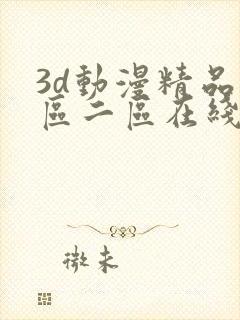 3d動漫精品
區二區在綫
微未